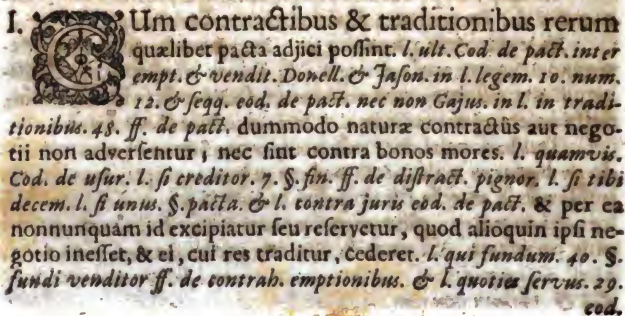 I. CUm contractibus & traditionibus rerum
quælibet pacta adjici possint. l. ult. Cod. de pact. inter
empt. & vendit. Donell. & Jason. in l. legem. 10. num.
12. & seqq. eod. de pact. nec non Gajus. in l. in tradi-
tionibus. 48. ff. de pact. dummodo naturæ contractûs aut nego-
tii non adversentur, nec sint contra bonos mores. l. quamvis.
Cod. de usur. l. si creditor. 7. §. fin. ff. de distract. pignor. l. si tibi
decem. l. si unus. §. pacta. & l. contra juris eod. de pact. & per ea
nonnunquàm id excipiatur seu reservetur, quod alioquin ipsi ne-
gotio inesset, & ei, cui res traditur, cederet. l. qui fundum. 40. §.
fundi venditor ff. de contrah. emptionibus. & l. quoties servus. 29.
eod.